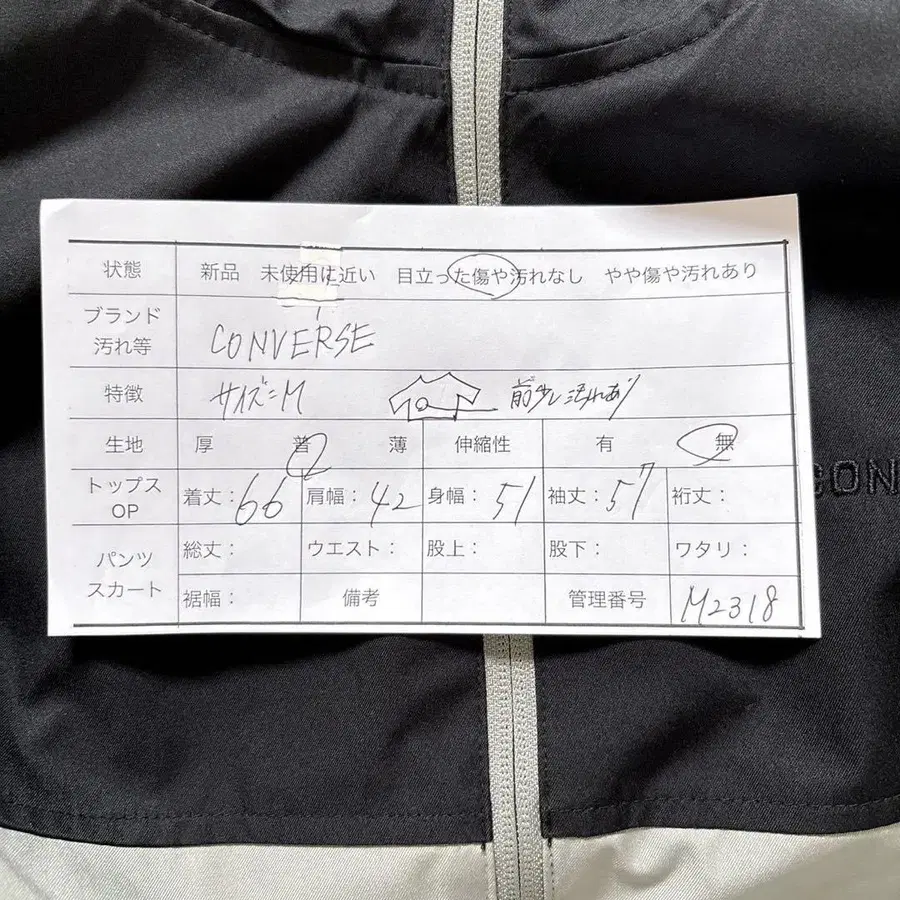 状態 新品 未使用に近い 目立った傷や汚れなし やや傷や汚れあり
ブランド
汚れ等 CONVERSE
特徴 サイズ=M 前少しに汚れあり
生地 厚 普 薄 伸縮性 有 無
CON
トップス
OP 着丈:66 肩幅:42 身幅:51 袖丈:57 裄丈:
パンツ
スカート
総丈: ウエスト: 股上: 股下: ワタリ:
裾幅: 備考 管理番号 M2318